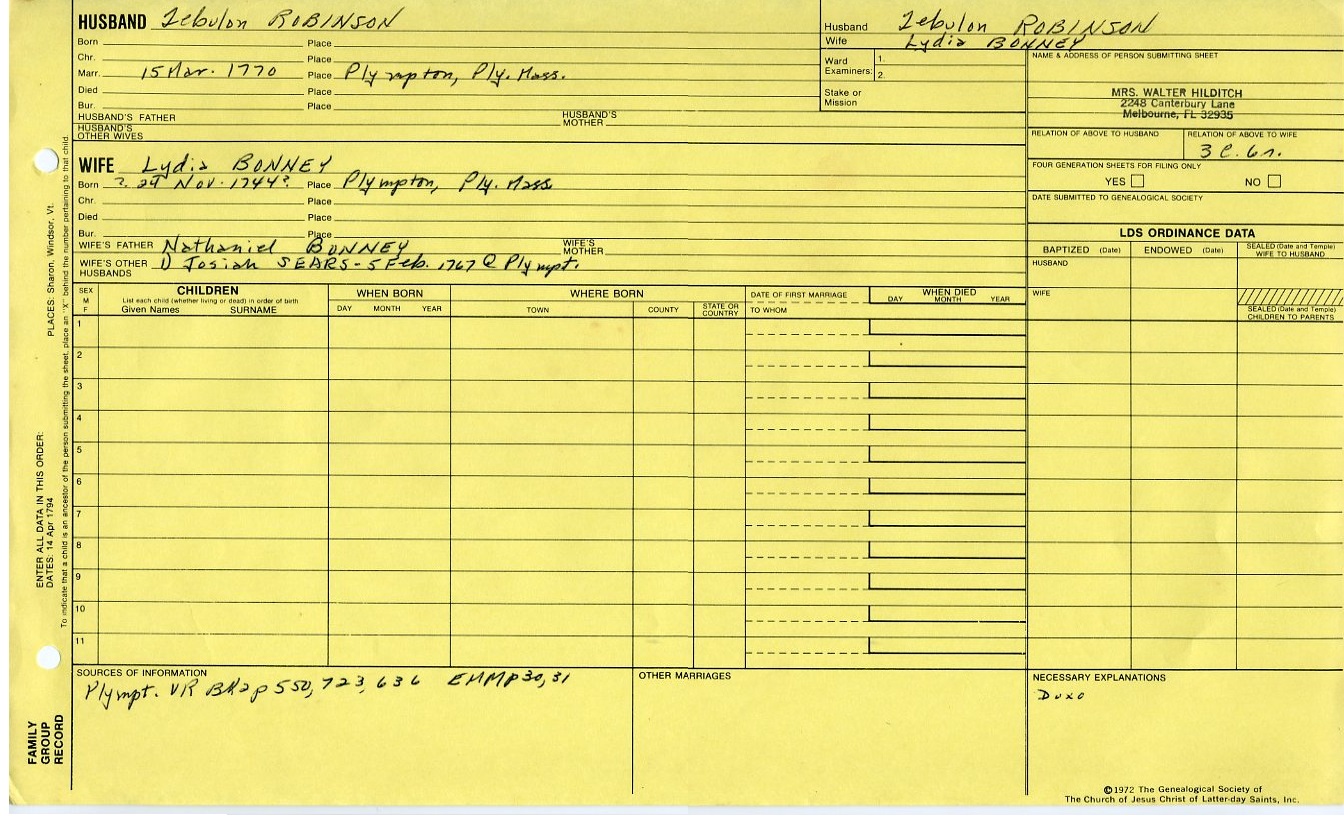 HUSBAND Zebulon ROBINSON
Born Place
Chr. Place
Marr. 15 Mar. 1770 Place Plympton, Ply. Mass.
Died Place
Bur. Place
HUSBAND'S FATHER HUSBAND'S MOTHER
HUSBAND'S OTHER WIVES
Husband Zebulon ROBINSON
Wife Lydia BONNEY
Ward Examiners: 1.
2.
Stake or Mission
NAME & ADDRESS OF PERSON SUBMITTING SHEET
MRS. WALTER HILDITCH
2248 Canterbury Lane
Melbourne, FL 32935
RELATION OF ABOVE TO HUSBAND RELATION OF ABOVE TO WIFE
3 C. 6r.
FOUR GENERATION SHEETS FOR FILING ONLY
YES NO
DATE SUBMITTED TO GENEALOGICAL SOCIETY
WIFE Lydia BONNEY
Born ? 29 Nov. 1744? Place Plympton, Ply. Mass
Chr. Place
Died Place
Bur. Place
WIFE'S FATHER Nathaniel BONNEY WIFE'S MOTHER
WIFE'S OTHER HUSBANDS 1) Josiah SEARS - 5 Feb. 1767 @ Plympt.
LDS ORDINANCE DATA
BAPTIZED (Date) ENDOWED (Date) SEALED (Date and Temple) WIFE TO HUSBAND
HUSBAND
WIFE
SEALED (Date and Temple) CHILDREN TO PARENTS
SEX M F
CHILDREN
List each child (whether living or dead) in order of birth
Given Names SURNAME
WHEN BORN
DAY MONTH YEAR
WHERE BORN
TOWN COUNTY STATE OR COUNTRY
DATE OF FIRST MARRIAGE
TO WHOM
WHEN DIED
DAY MONTH YEAR
1
2
3
4
5
6
7
8
9
10
11
SOURCES OF INFORMATION
Plympt. VR BK2p 550, 723, 636 EMMp30, 31
OTHER MARRIAGES
NECESSARY EXPLANATIONS
Duxo
©1972 The Genealogical Society of
The Church of Jesus Christ of Latter-day Saints, Inc.
PLACES: Sharon, Windsor, Vt.
To indicate that a child is an ancestor of the person submitting the sheet, place an "X" behind the number pertaining to that child.
ENTER ALL DATA IN THIS ORDER:
DATES: 14 Apr 1794
FAMILY
GROUP
RECORD